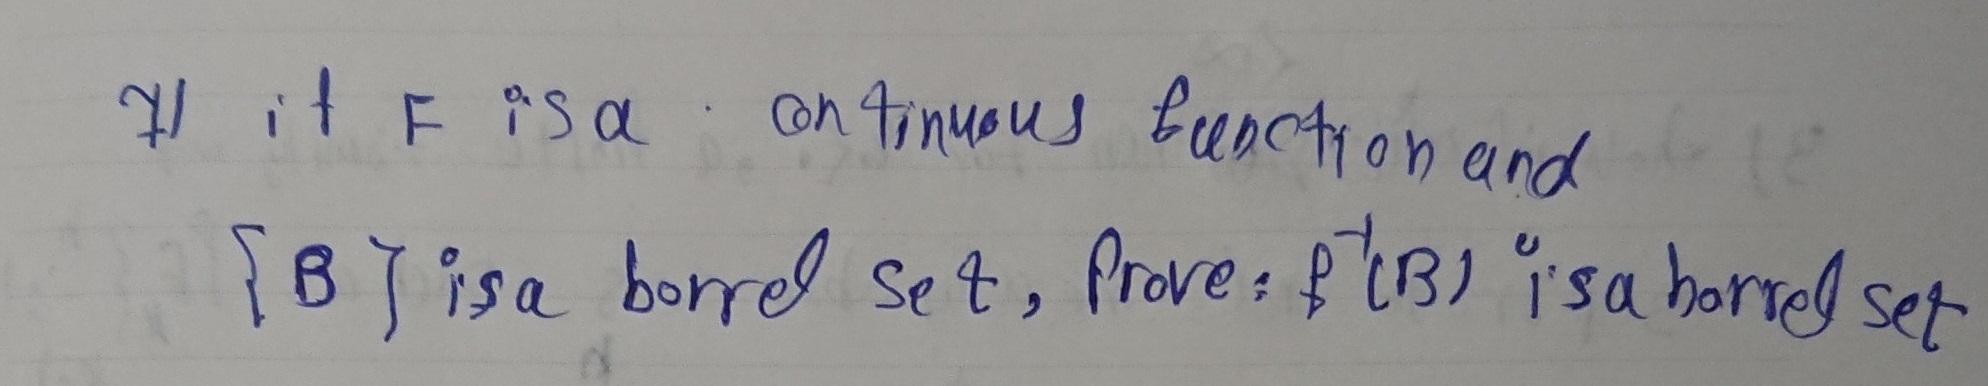 7) if F is a continuous function and
{B} is a borrel set, Prove: f⁻¹(B) is a borrel set